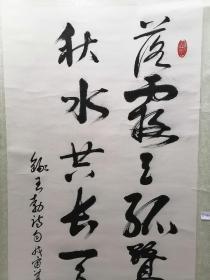 落霞与孤鹜
秋水共长天
录王勃诗句